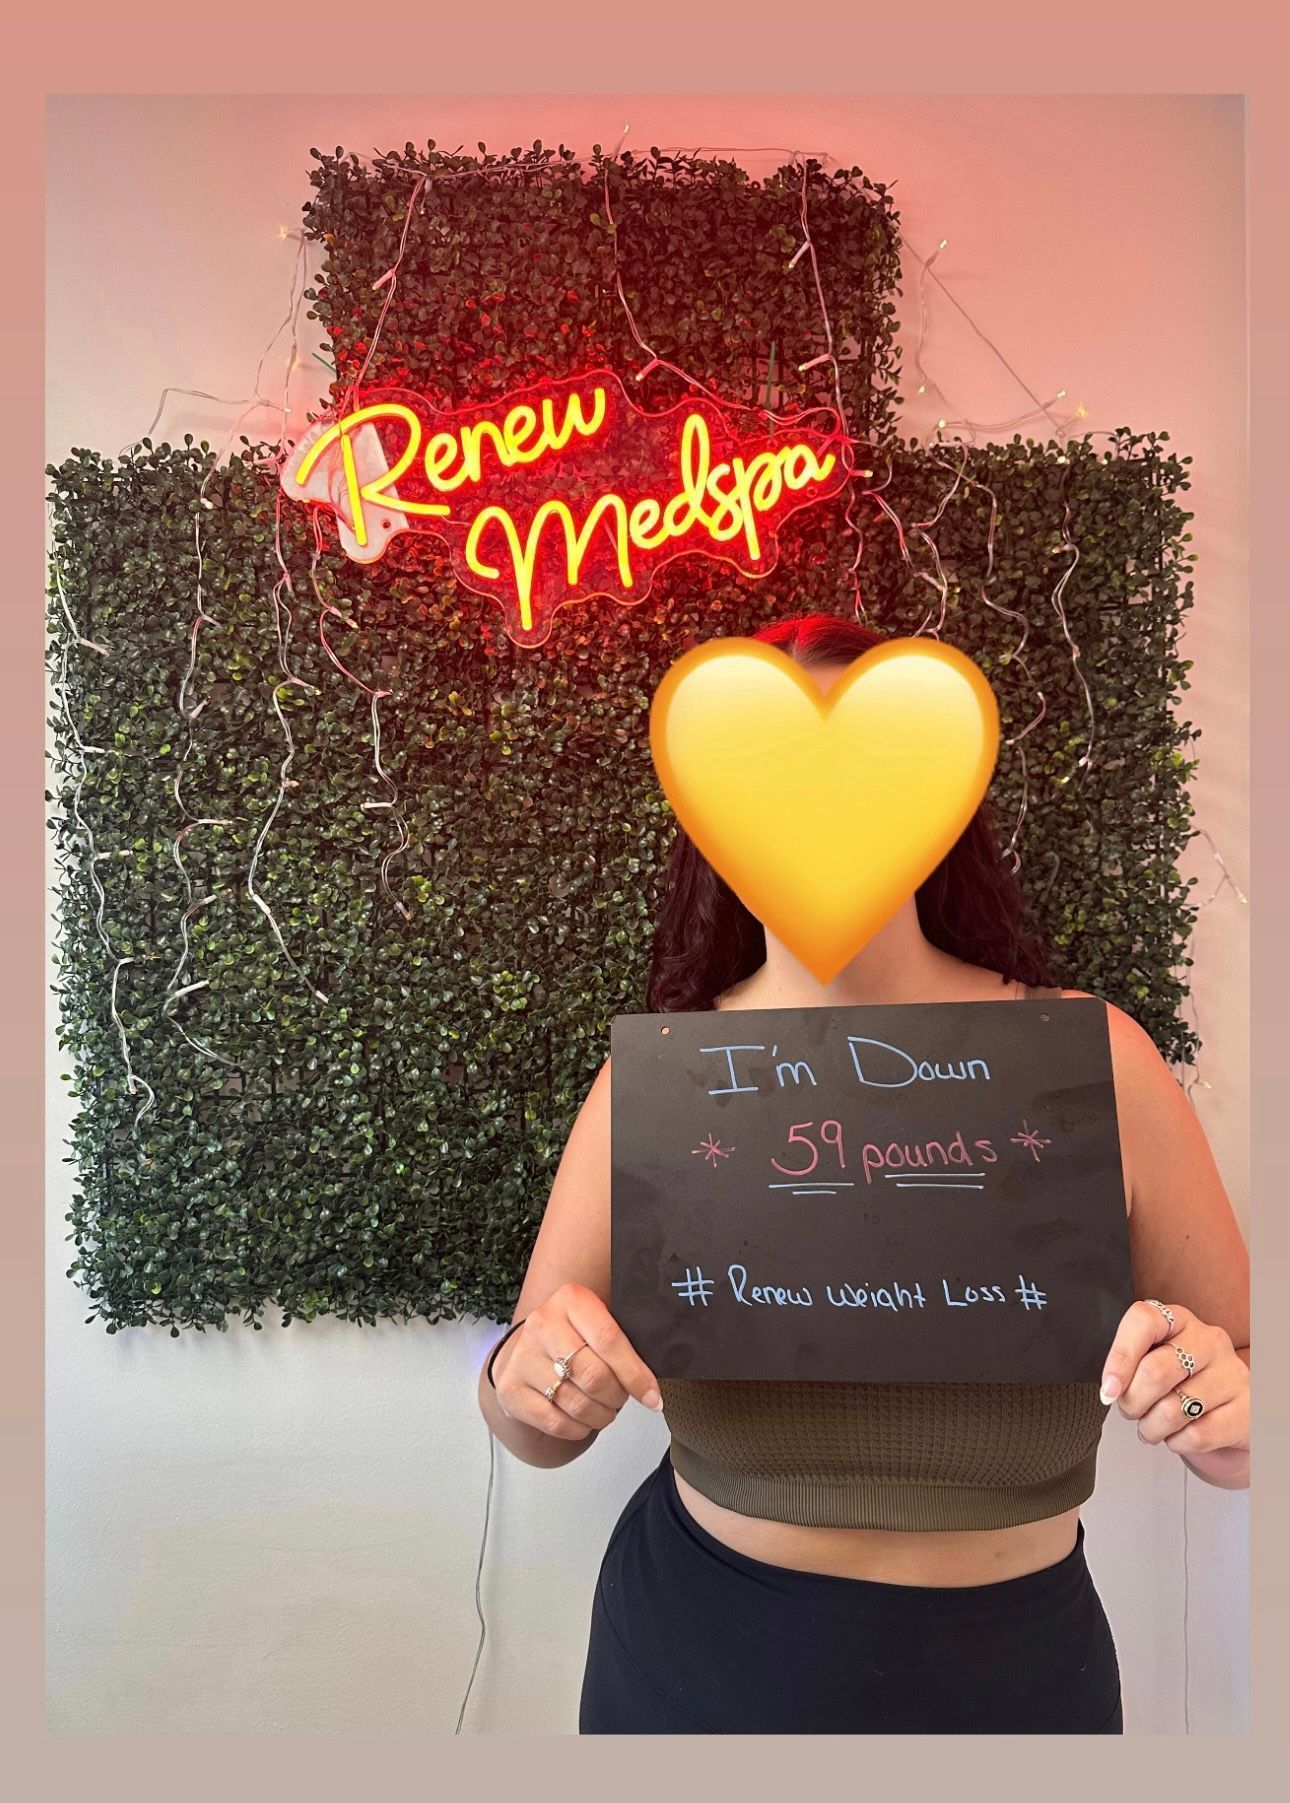 Renew
Medspa
I'm Down
* 59 pounds *
# Renew Weight Loss #